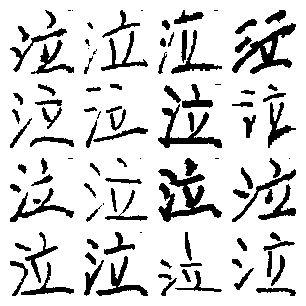 泣泣泣泣
泣泣泣泣
泣泣泣泣
泣泣泣泣